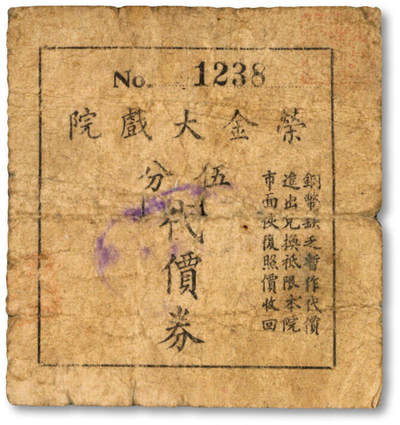 No. 1238
榮金大戲院
伍分
代價券
銅幣缺乏暫作代價
進出兌換祗限本院
市面恢復照價收回